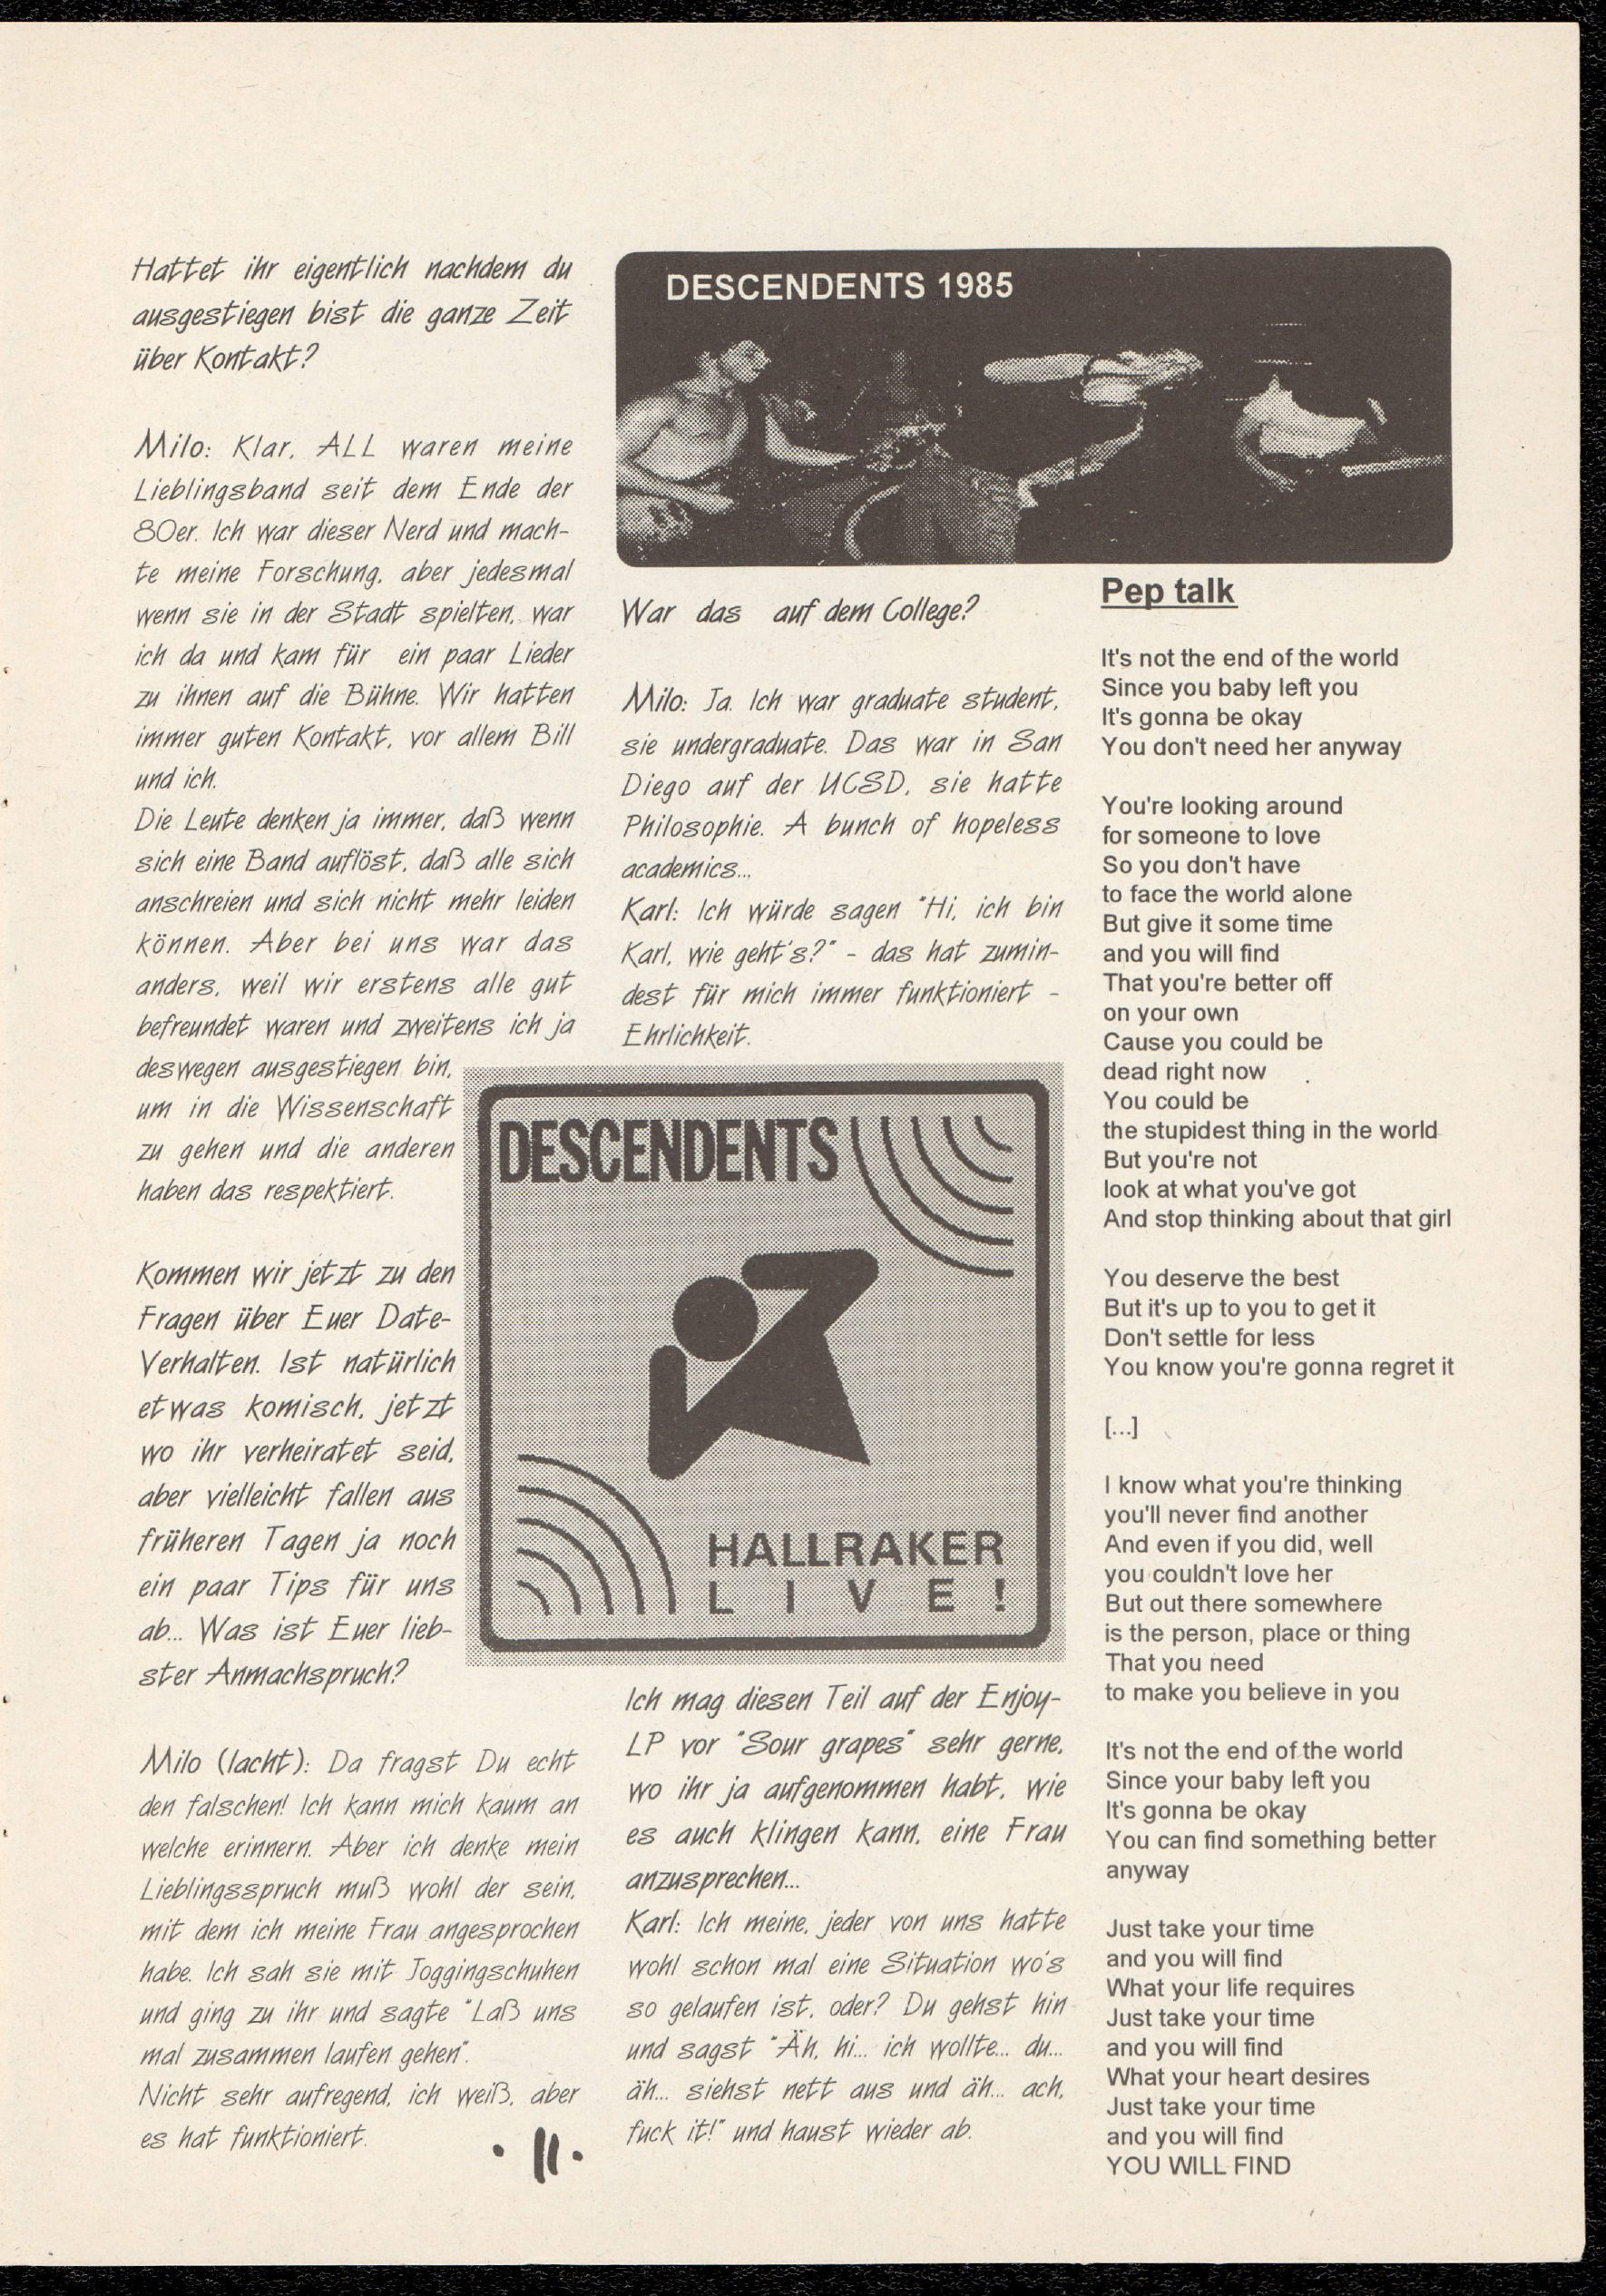 Hattet ihr eigentlich nachdem du
ausgestiegen bist die ganze Zeit
über Kontakt?
Milo: Klar, ALL waren meine
Lieblingsband seit dem Ende der
80er. Ich war dieser Nerd und mach-
te meine Forschung, aber jedesmal
wenn sie in der Stadt spielten, war
ich da und kam für ein paar Lieder
zu ihnen auf die Bühne. Wir hatten
immer guten Kontakt, vor allem Bill
und ich.
Die Leute denken ja immer, daß wenn
sich eine Band auflöst, daß alle sich
anschreien und sich nicht mehr leiden
können. Aber bei uns war das
anders, weil wir erstens alle gut
befreundet waren und zweitens ich ja
deswegen ausgestiegen bin,
um in die Wissenschaft
zu gehen und die anderen
haben das respektiert.
Kommen wir jetzt zu den
Fragen über Euer Date-
Verhalten. Ist natürlich
etwas komisch, jetzt
wo ihr verheiratet seid,
aber vielleicht fallen aus
früheren Tagen ja noch
ein paar Tips für uns
ab... Was ist Euer lieb-
ster Anmachspruch?
Milo (lacht): Da fragst Du echt
den falschen! Ich kann mich kaum an
welche erinnern. Aber ich denke mein
Lieblingsspruch muß wohl der sein,
mit dem ich meine Frau angesprochen
habe. Ich sah sie mit Joggingschuhen
und ging zu ihr und sagte "Laß uns
mal zusammen laufen gehen".
Nicht sehr aufregend, ich weiß, aber
es hat funktioniert.
· 11 ·
DESCENDENTS 1985
War das auf dem College?
Milo: Ja. Ich war graduate student,
sie undergraduate. Das war in San
Diego auf der UCSD, sie hatte
Philosophie. A bunch of hopeless
academics...
Karl: Ich würde sagen "Hi, ich bin
Karl, wie geht's?" - das hat zumin-
dest für mich immer funktioniert -
Ehrlichkeit.
DESCENDENTS
HALLRAKER
LIVE!
Ich mag diesen Teil auf der Enjoy-
LP vor "Sour grapes" sehr gerne,
wo ihr ja aufgenommen habt, wie
es auch klingen kann, eine Frau
anzusprechen...
Karl: Ich meine, jeder von uns hatte
wohl schon mal eine Situation wo's
so gelaufen ist, oder? Du gehst hin
und sagst "Äh, hi... ich wollte... du...
äh... siehst nett aus und äh... ach,
fuck it!" und haust wieder ab.
Pep talk
It's not the end of the world
Since you baby left you
It's gonna be okay
You don't need her anyway
You're looking around
for someone to love
So you don't have
to face the world alone
But give it some time
and you will find
That you're better off
on your own
Cause you could be
dead right now
You could be
the stupidest thing in the world
But you're not
look at what you've got
And stop thinking about that girl
You deserve the best
But it's up to you to get it
Don't settle for less
You know you're gonna regret it
[...]
I know what you're thinking
you'll never find another
And even if you did, well
you couldn't love her
But out there somewhere
is the person, place or thing
That you need
to make you believe in you
It's not the end of the world
Since your baby left you
It's gonna be okay
You can find something better
anyway
Just take your time
and you will find
What your life requires
Just take your time
and you will find
What your heart desires
Just take your time
and you will find
YOU WILL FIND